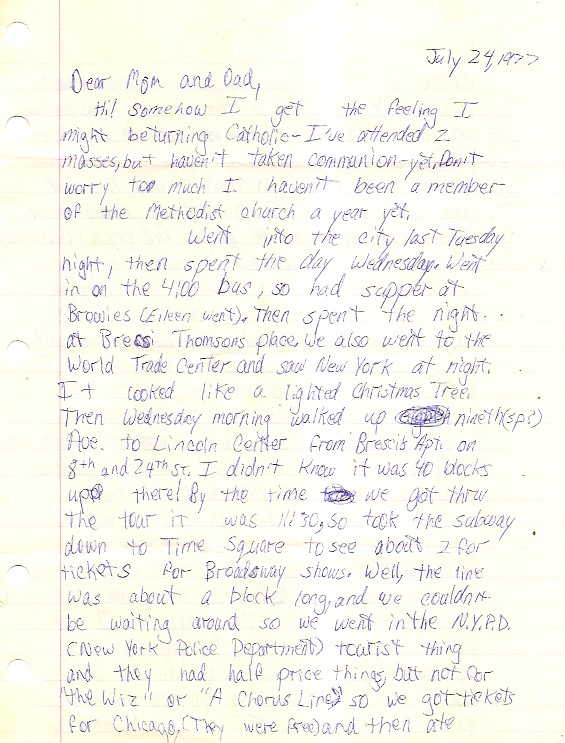 July 24, 1977
Dear Mom and Dad,
Hi! Somehow I get the feeling I
might be turning Catholic - I've attended 2
masses, but haven't taken communion - yet, Don't
worry too much I haven't been a member
of the Methodist church a year yet.
Went into the city last Tuesday
night, then spent the day Wednesday. Went
in on the 4:00 bus, so had supper at
Browies (Eileen went). Then spent the night
at Bress Thomsons place. We also went to the
World Trade Center and saw New York at night.
It looked like a lighted Christmas Tree.
Then Wednesday morning walked up nineth (sp?)
Ave. to Lincoln Center from Bresci's Apt. on
8th and 24th St. I didn't know it was 40 blocks
up there! By the time we got thru
the tour it was 11:30, so took the subway
down to Time Square to see about 2 for
tickets for Broadway shows. Well, the line
was about a block long, and we couldn't
be waiting around so we went in the N.Y.P.D.
(New York Police Department) tourist thing
and they had half price things, but not for
"the Wiz" or "A Chorus Line" so we got tickets
for Chicago, (They were free) and then ate